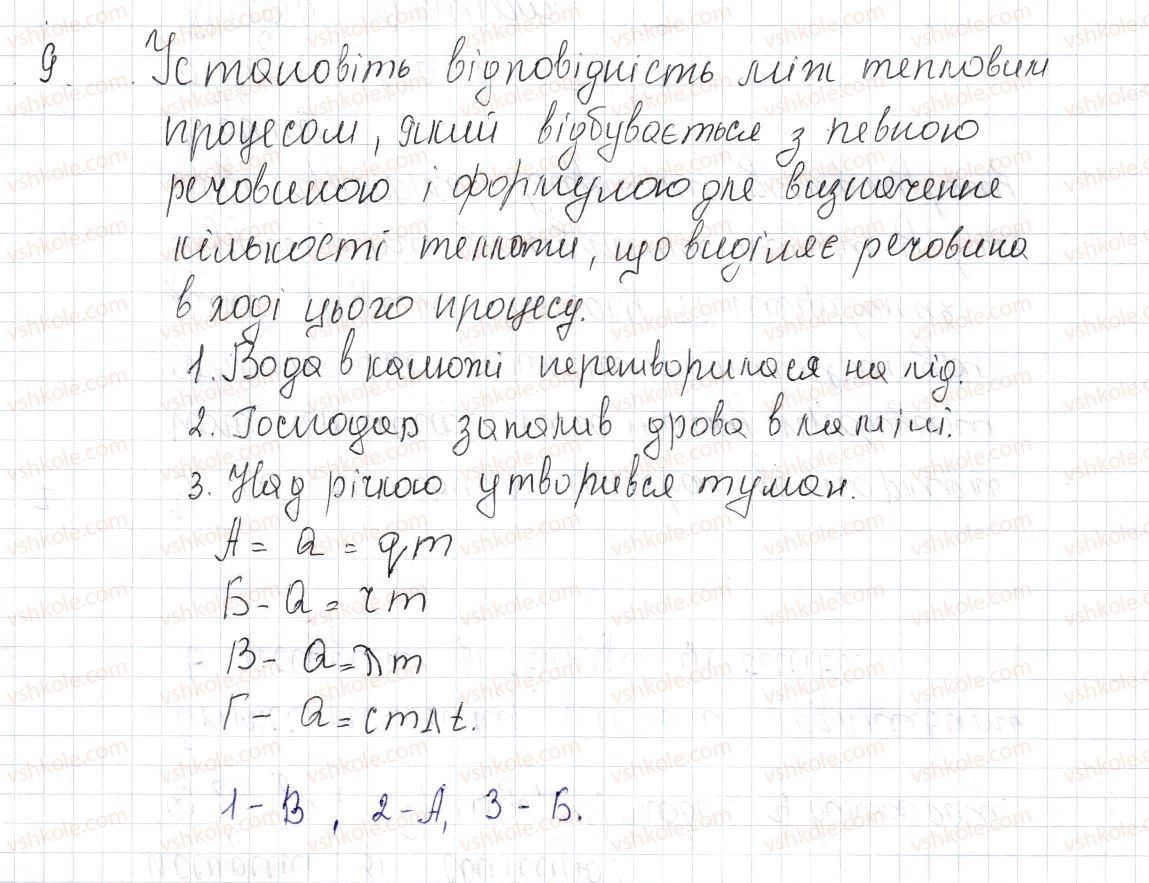 9. Установіть відповідність між тепловим
процесом, який відбувається з певною
речовиною і формулою для визначення
кількості теплоти, що виділяє речовина
в ході цього процесу.
1. Вода в калюжі перетворилася на лід.
2. Господар запалив дрова в каміні.
3. Над річкою утворився туман.
А = Q = qm
Б - Q = rm
В - Q = λm
Г - Q = cmΔt.
1 - В, 2 - А, 3 - Б.
vshkole.com